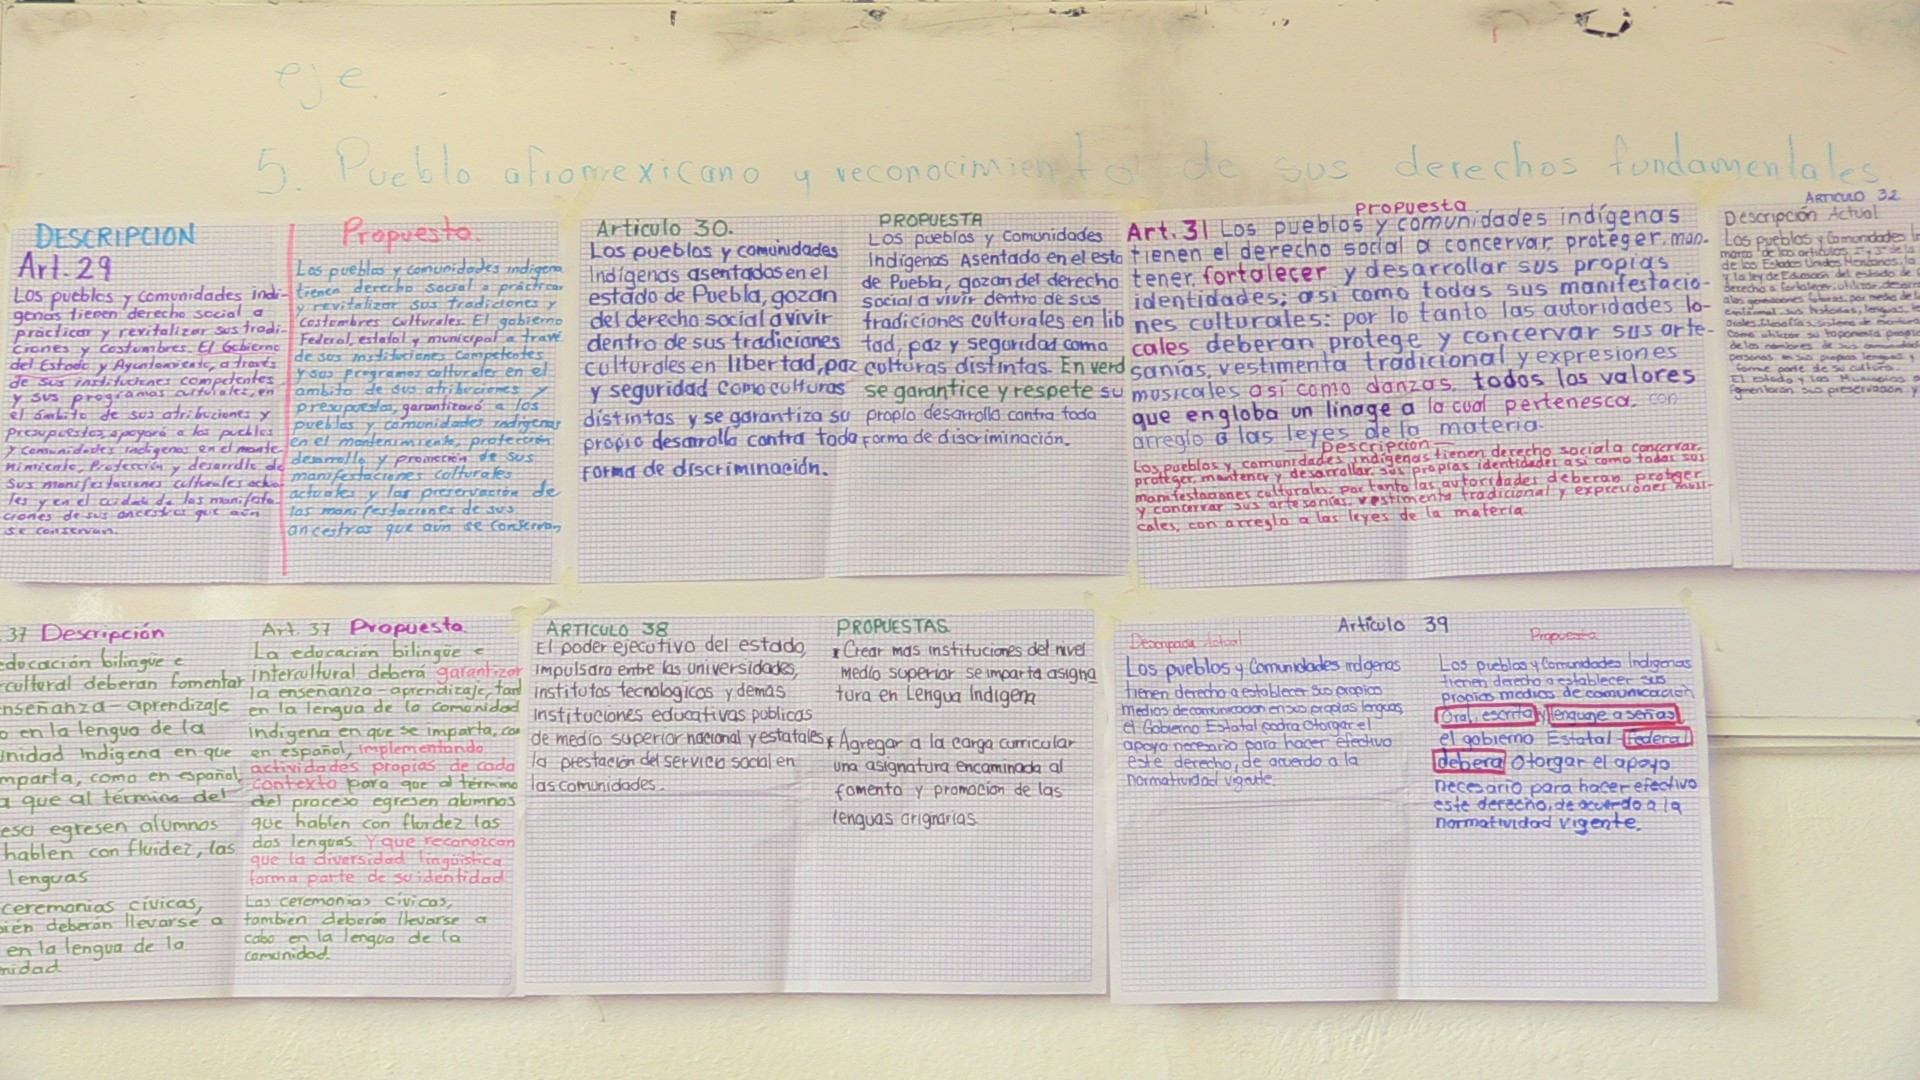 eje
5. Pueblo afromexicano y reconocimiento de sus derechos fundamentales
DESCRIPCION
Art. 29
Los pueblos y comunidades indi-
genas tienen derecho social a
practicar y revitalizar sus tradi-
ciones y costumbres. El Gobierno
del Estado y Ayuntamiento, a través
de sus instituciones competentes
y sus programas culturales, en
el ámbito de sus atribuciones y
presupuestos, apoyará a los pueblos
y comunidades indigenas en el mante-
nimiento, Protección y desarrollo de
sus manifestaciones culturales actua-
les y en el cuidado de las manifesta-
ciones de sus ancestros que aún
se conservan.
Propuesta.
Los pueblos y comunidades indigena
tienen derecho social a prácticar
y revitalizar sus tradiciones y
costumbres culturales. El gobierno
Federal, estatal y municipal a travé
de sus instituciones competentes
y sus programas culturales en el
ambito de sus atribuciones y
presupuestos, garantizará a los
pueblos y comunidades indigenas
en el mantenimiento, protección
desarrollo y promoción de sus
manifestaciones culturales
actuales y las preservación de
las manifestaciones de sus
ancestros que aún se conservan,
Articulo 30.
Los pueblos y comunidades
Indígenas asentados en el
estado de Puebla, gozan
del derecho social a vivir
dentro de sus tradiciones
culturales en libertad, paz
y seguridad como culturas
distintas y se garantiza su
propio desarrollo contra toda
forma de discriminación.
PROPUESTA
Los pueblos y Comunidades
Indígenas Asentado en el esta
de Puebla, gozan del derecho
social a vivir dentro de sus
tradiciones culturales en lib
tad, paz y seguridad como
culturas distintas. En verd
se garantice y respete su
propio desarrollo contra toda
forma de discriminación.
Propuesta
Art. 31 Los pueblos y comunidades indígenas
tienen el derecho social a concervar proteger, man-
tener, fortalecer y desarrollar sus propias
identidades; así como todas sus manifestacio-
nes culturales: por lo tanto las autoridades lo-
cales deberan protege y concervar sus arte-
sanías, vestimenta tradicional y expresiones
musicales así como danzas, todos los valores
que engloba un linage a la cual pertenesca, con
arreglo a las leyes de la materia.
Descripción
Los pueblos y comunidades indígenas tienen derecho social a concervar,
proteger, mantener y desarrollar sus propias identidades así como todas sus
manifestaciones culturales, por tanto las autoridades deberan proteger
y concervar sus artesanías, vestimenta tradicional y expresiones musi-
cales, con arreglo a las leyes de la materia
ARTICULO 32
Descripción Actual
Los pueblos y Comunidades
de los Estados Unidos Mexicanos, la
y la ley de Educación del estado de
personas en sus propias lenguas y
forme parte de su cultura.
El estado y los Municipios
fomentaran su preservación y
37 Descripción
educación bilingüe e
rcultural deberan fomentar
nseñanza-aprendizaje
o en la lengua de la
unidad Indigena en que
mparta, como en español,
a que al término del
eso egresen alumnos
hablen con fluidez, las
lenguas
ceremonias cívicas,
ién deberán llevarse a
en la lengua de la
nidad.
Art. 37 Propuesta
La educación bilingüe e
intercultural deberá garantizar
la enseñanza-aprendizaje, tant
en la lengua de la comunidad
indigena en que se imparta, com
en español, implementando
actividades propias de cada
contexto para que al término
del proceso egresen alumnos
que hablen con fluidez las
dos lenguas. Y que reconozcan
que la diversidad lingüística
forma parte de su identidad
Las ceremonias cívicas,
tambien deberán llevarse a
cabo en la lengua de la
comunidad.
ARTICULO 38
El poder ejecutivo del estado,
impulsara entre las universidades,
institutos tecnologicos y demás
instituciones educativas publicas
de medio superior nacional y estatales
la prestación del servicio social en
las comunidades.
PROPUESTAS
* Crear mas instituciones del nivel
medio superior se imparta asigna
tura en Lengua Indígena
* Agregar a la carga curricular
una asignatura encaminada al
fomento y promocion de las
lenguas originarias
Artículo 39
Actual
Los pueblos y Comunidades indigenas
tienen derecho a establecer sus propios
medios de comunicacion en sus propias lenguas,
el Gobierno Estatal podra otorgar el
apoyo necesario para hacer efectivo
este derecho, de acuerdo a la
normatividad vigente.
Propuesta
Los pueblos y Comunidades Indigenas
tienen derecho a establecer sus
propios medios de comunicación
oral, escrita y lenguaje a señas
el gobierno Estatal Federal
debera otorgar el apoyo
necesario para hacer efectivo
este derecho, de acuerdo a la
normatividad vigente.